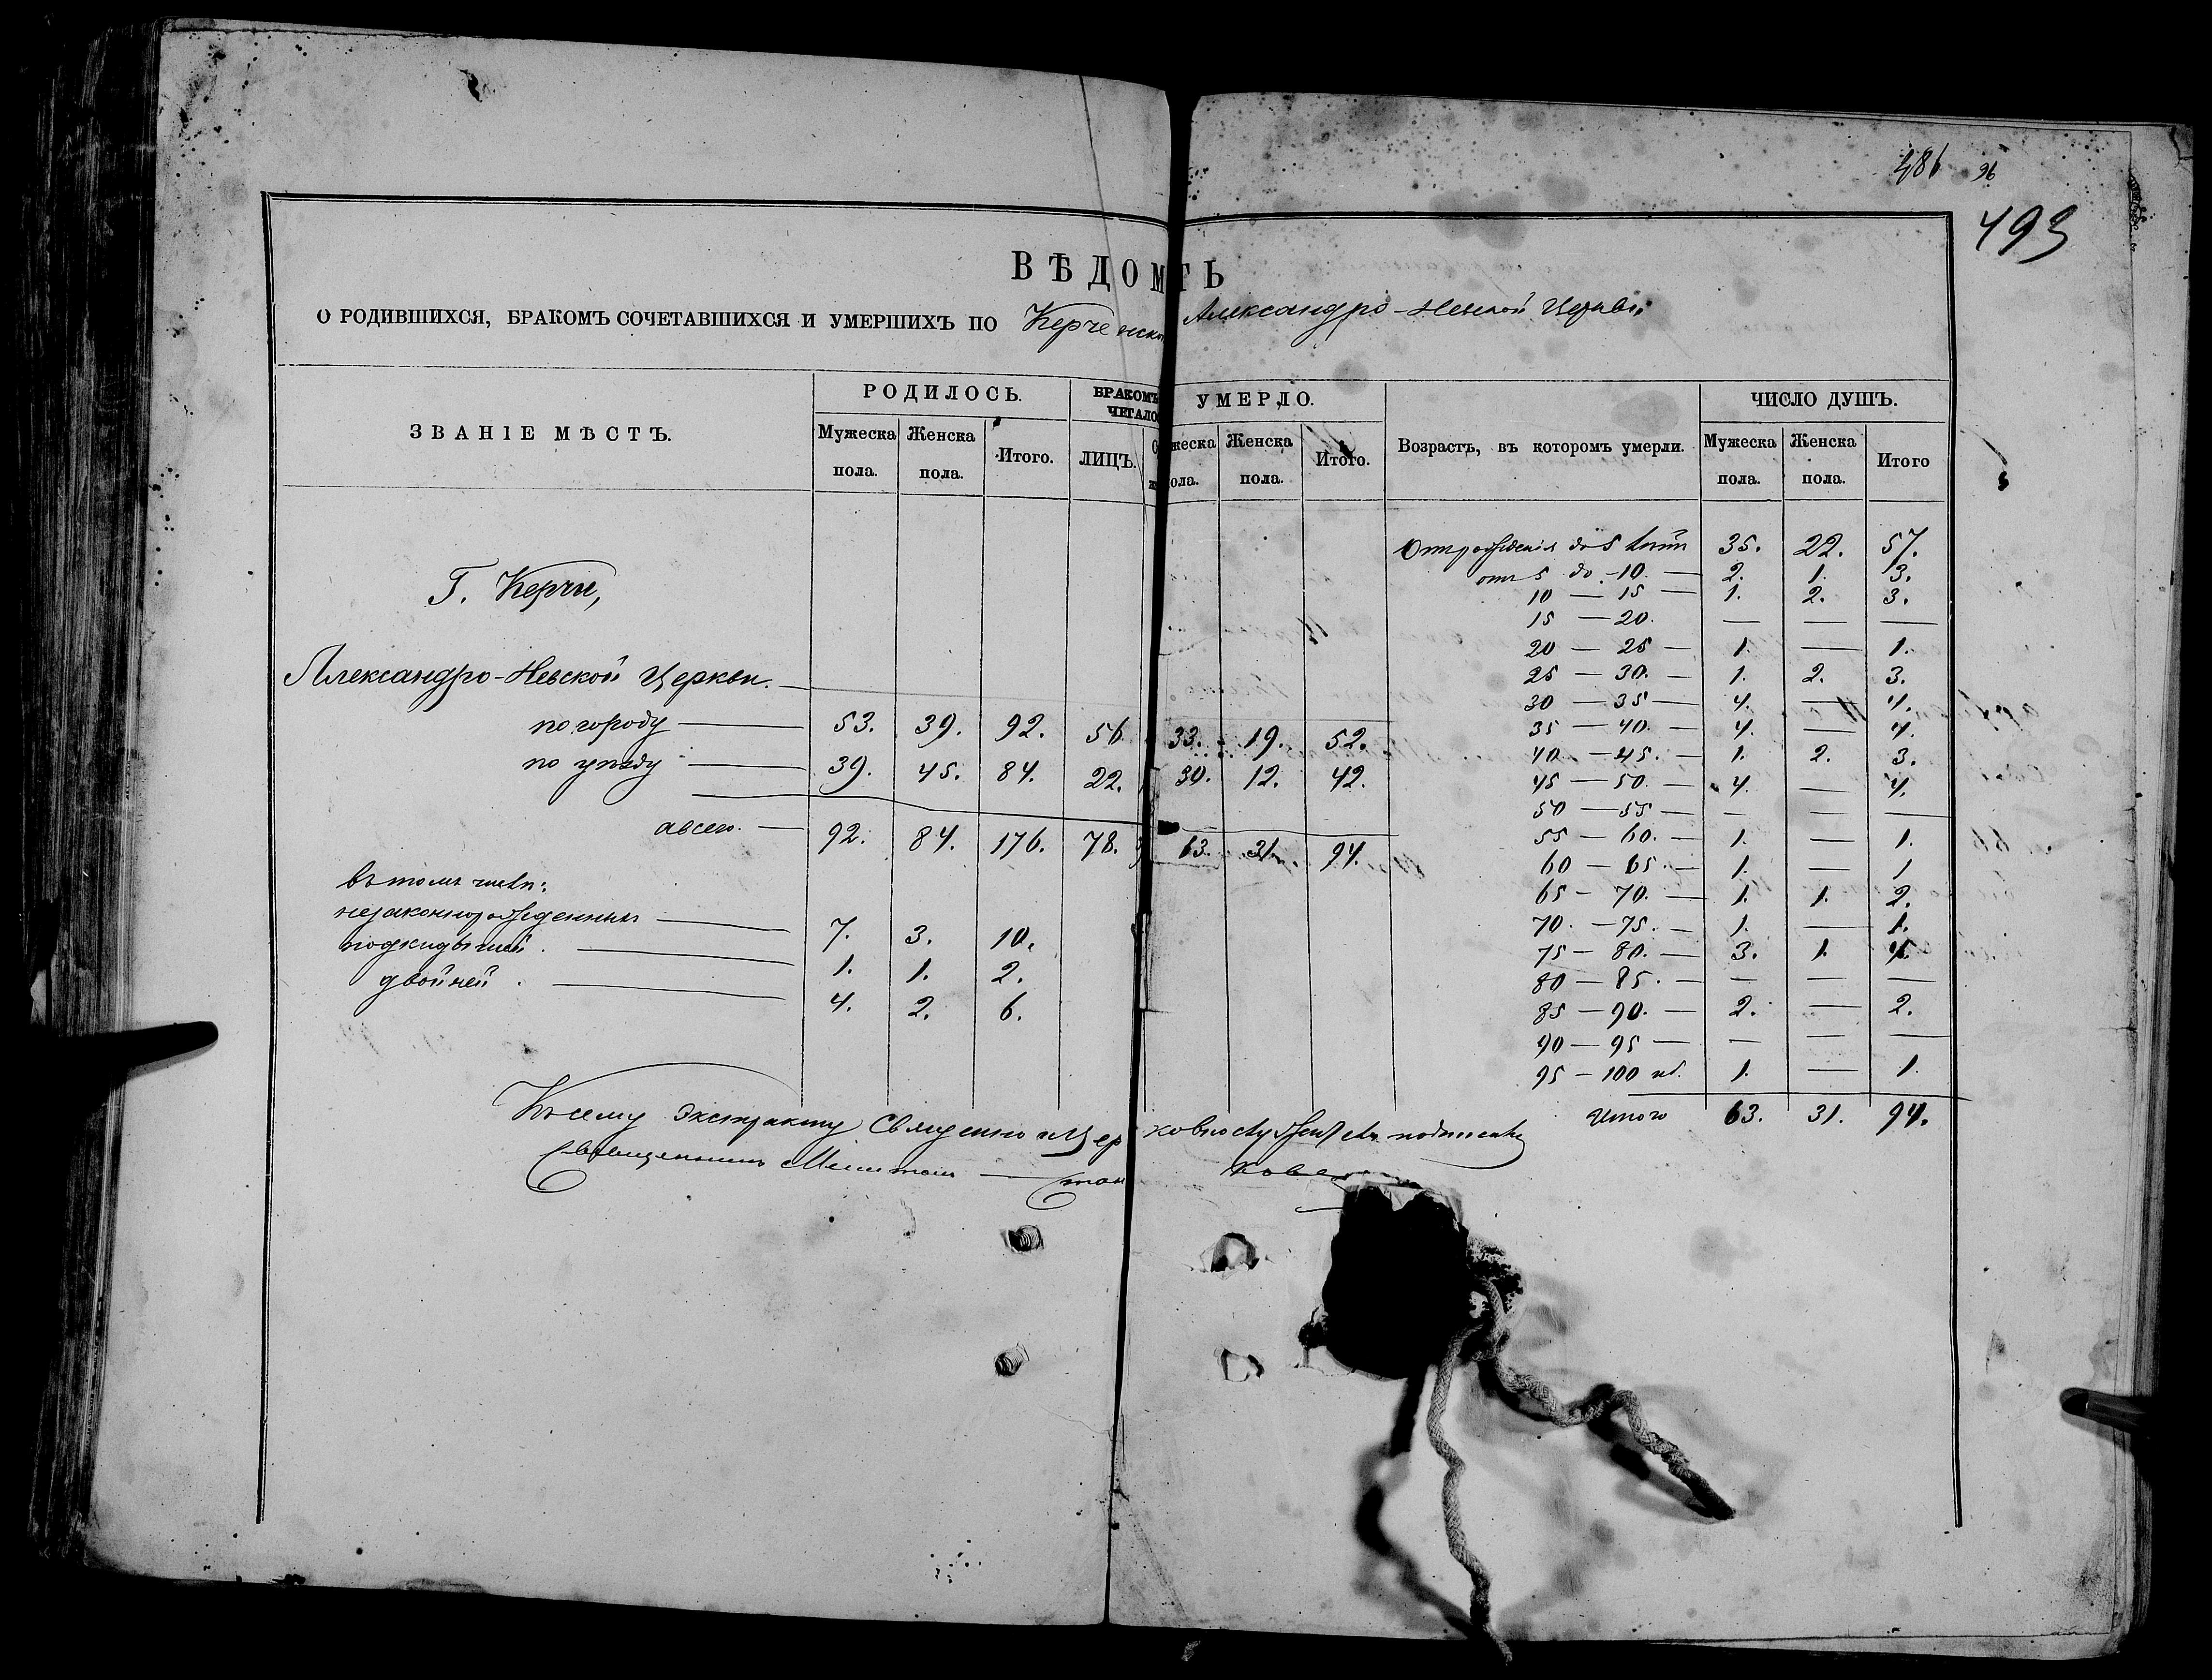 486 96
493
ВѢДОМ ТЬ
О РОДИВШИХСЯ, БРАКОМЪ СОЧЕТАВШИХСЯ И УМЕРШИХЪ ПО Керченско Александро-Невской Церкви
ЗВАНІЕ МѢСТЪ. РОДИЛОСЬ. БРАКОМЪ ЧЕТАЛО УМЕРЛО. Возрастъ, въ которомъ умерли. ЧИСЛО ДУШЪ.
Мужеска пола. Женска пола. Итого. ЛИЦЪ. жеска ола. Женска пола. Итого. Мужеска пола. Женска пола. Итого
Г. Керчи,
Александро-Невской Церкви. —
по городу — 53. 39. 92. 56 33. 19. 52.
по уѣзду — 39. 45. 84. 22. 30. 12. 42.
а всего. — 92. 84. 176. 78. 63. 31. 94.
въ томъ числѣ:
незаконнорожденныхъ — 7. 3. 10.
подкидышей. — 1. 1. 2.
двойней. — 4. 2. 6.
Отъ рожденія до 5 лѣтъ 35. 22. 57.
отъ 5 до 10. — 2. 1. 3.
10 — 15 — 1. 2. 3.
15 — 20. — — —
20 — 25 — 1. — 1.
25 — 30. — 1. 2. 3.
30 — 35 — 4. — 4.
35 — 40. — 4. — 4.
40 — 45. — 1. 2. 3.
45 — 50. — 4. — 4.
50 — 55 — — — —
55 — 60. — 1. — 1.
60 — 65. — 1. — 1
65 — 70. — 1. 1. 2.
70. — 75. — 1. — 1.
75 — 80. — 3. 1. 4.
80 — 85. — — — —
85 — 90. — 2. — 2.
90 — 95 — — — —
95 — 100 1. — 1
Итого 63. 31. 94.
Къ сему экстракту Священно и Церковнослужители подписались
Священникъ